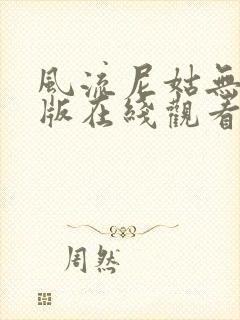 風流尼姑無
版在綫觀看
周然